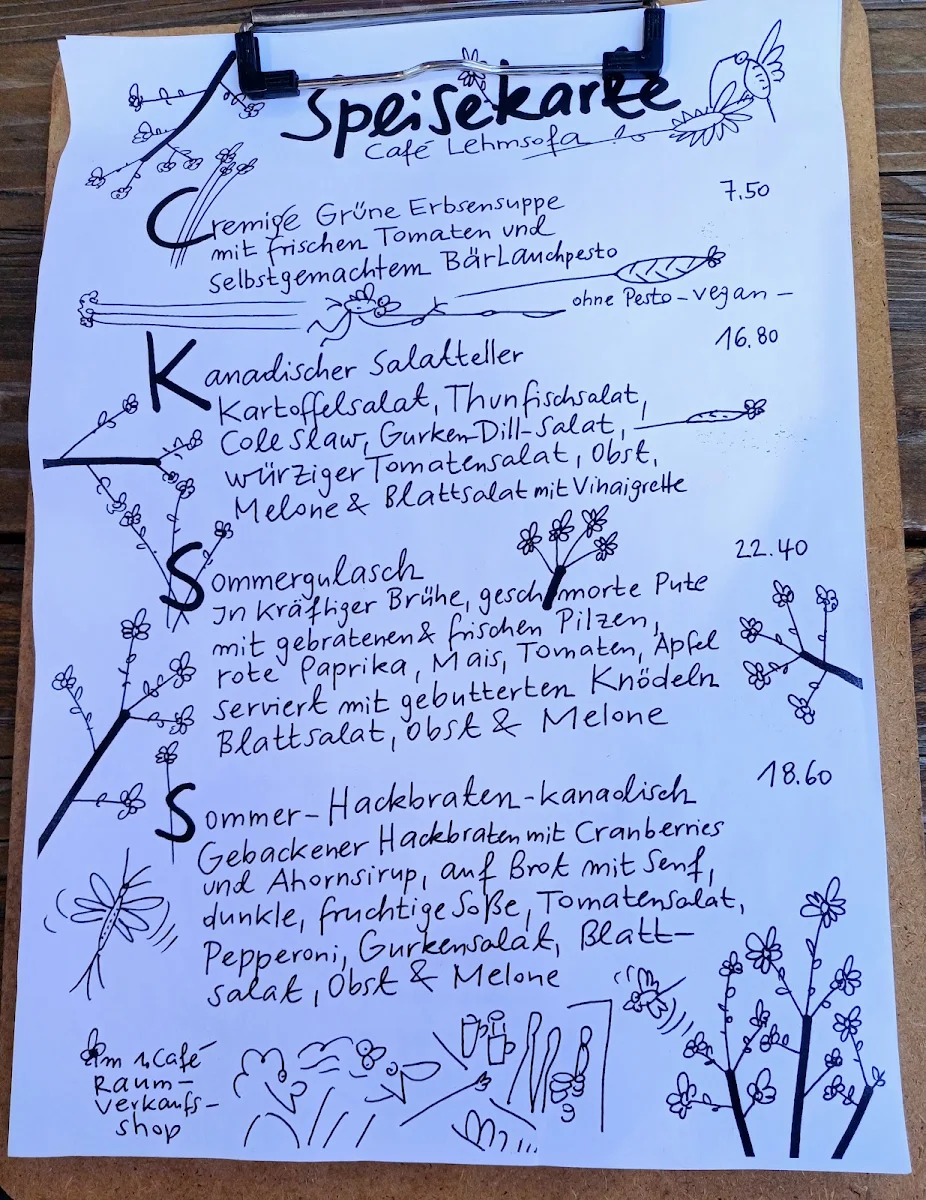 Speisekarte
Café Lehmsofa
Cremige Grüne Erbsensuppe 7,50
mit frischen Tomaten und
selbstgemachtem Bärlauchpesto
ohne Pesto - vegan -
Kanadischer Salatteller 16.80
Kartoffelsalat, Thunfischsalat,
Cole Slaw, Gurken-Dill-Salat,
würziger Tomatensalat, Obst,
Melone & Blattsalat mit Vinaigrette
Sommergulasch 22.40
In kräftiger Brühe, geschmorte Pute
mit gebratenen & frischen Pilzen,
rote Paprika, Mais, Tomaten, Apfel
serviert mit gebutterten Knödeln
Blattsalat, Obst & Melone
Sommer-Hackbraten-kanadisch 18.60
Gebackener Hackbraten mit Cranberries
und Ahornsirup, auf Brot mit Senf,
dunkle, fruchtige Soße, Tomatensalat,
Pepperoni, Gurkensalat, Blatt-
salat, Obst & Melone
Im Café
Raum-
verkaufs-
shop